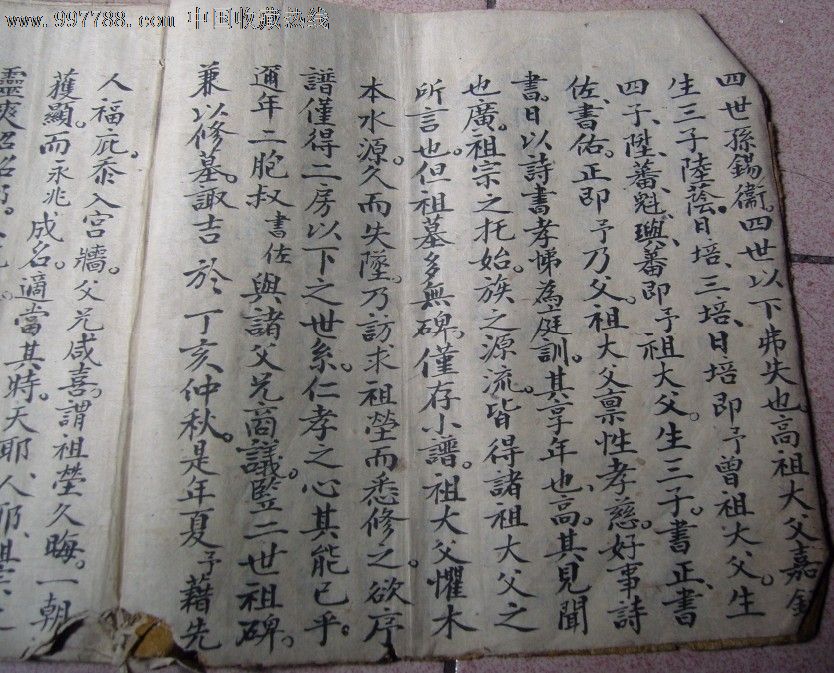 www.997788.com 中国收藏热线
四世孫錫衞。四世以下弗失也。高祖大父嘉
生三子陸蔭。日培、三培、日培即予曾祖大父。生
四子、陞、蕃、魁、興、蕃即予祖大父。生三子。書正、書
佐、書佑。正即予乃父。祖大父禀性孝慈。好事詩
書。日以詩書孝悌為庭訓。其享年也、高。其見聞
也廣。祖宗之托始。族之源流。皆得諸祖大父之
所言也。但祖墓多無碑。僅存小譜。祖大父懼木
本水源。久而失墜。乃訪求祖塋而悉修之。欲序
譜僅得二房以下之世系。仁孝之心其能已乎。
邇年二胞叔書佐與諸父兄商議。監二世祖碑。
兼以修墓。諏吉於丁亥仲秋。是年夏予藉先
人福庇。忝入宮牆。父兄咸喜。謂祖塋久晦。一朝
獲顯。而永兆成名。適當其時。天耶、人耶、祖宗之
靈爽